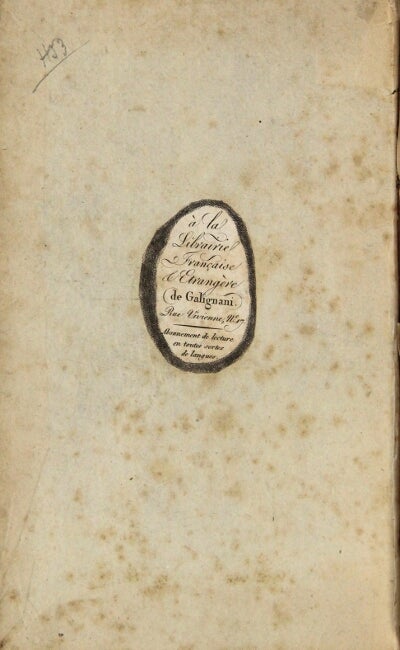 à la
Librairie
Française
& Etrangère
de Galignani.
Rue Vivienne, N.º 17
Abonnement de lecture
en toutes sortes
de langues